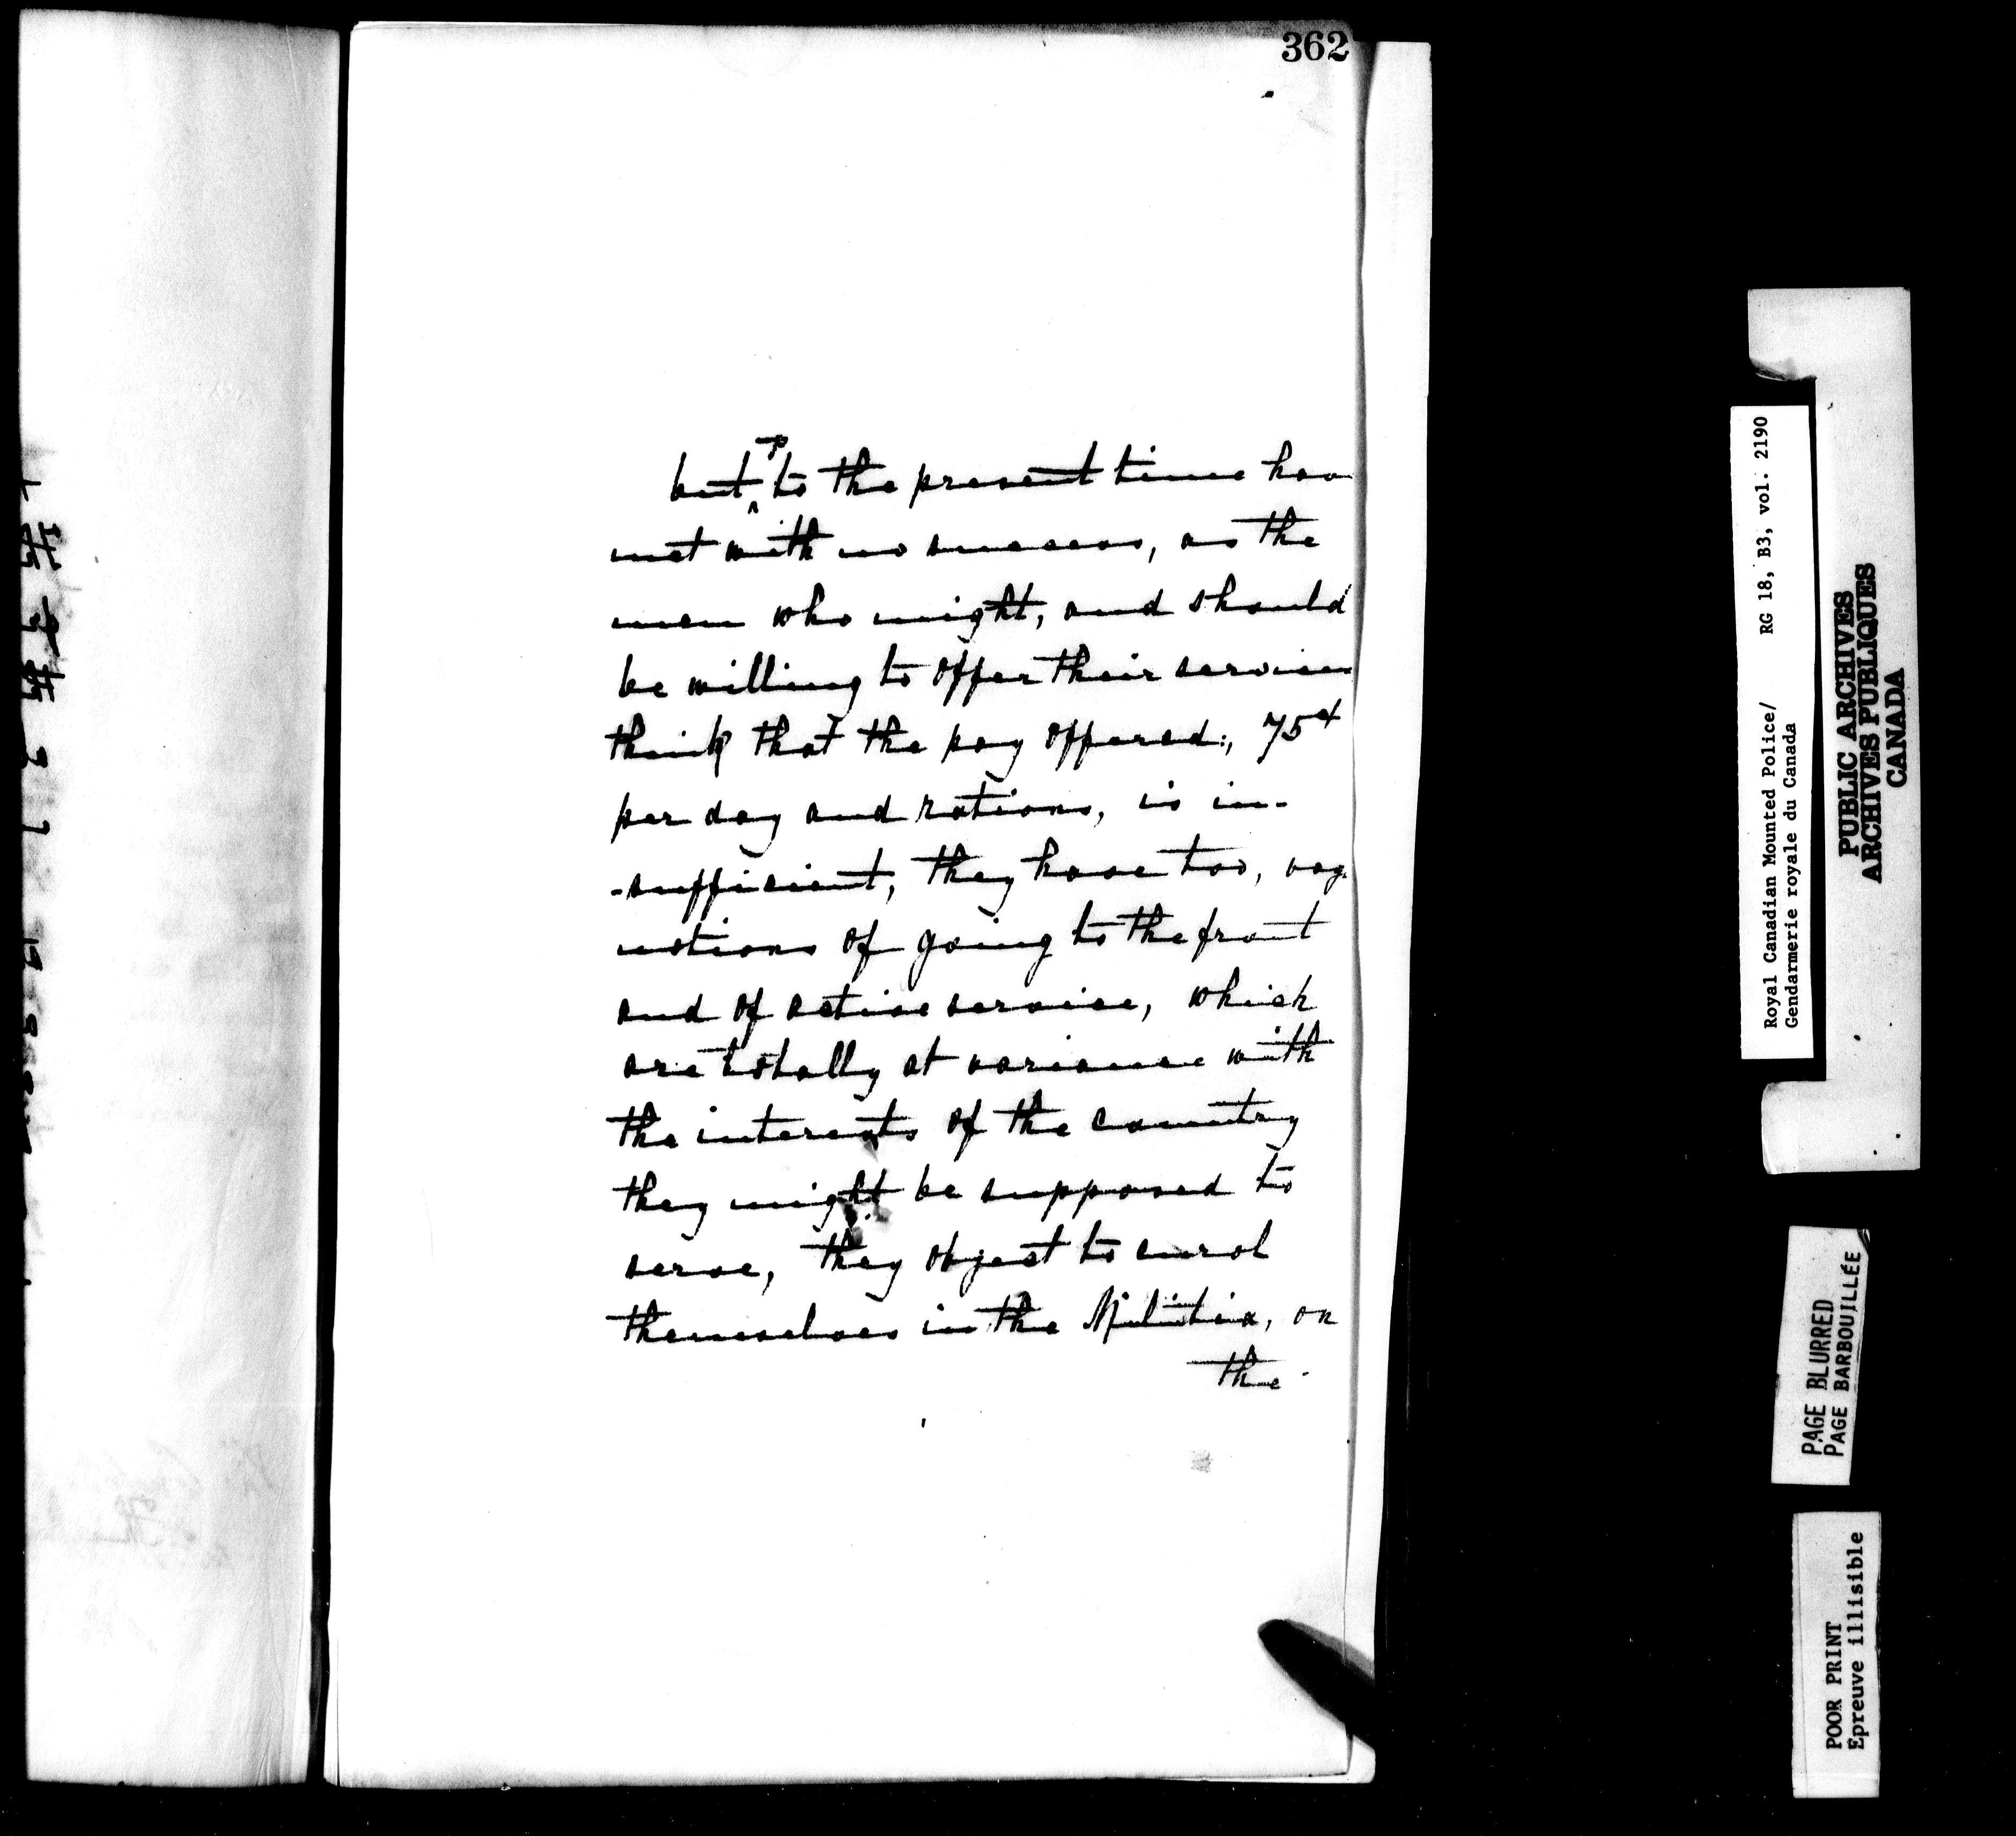 362
but up to the present time hav
met with no success, as the
men who might, and should
be willing to offer their services
think that the pay offered:, 75 cts
per day and rations, is in-
-sufficient, they have too, vag
notions of going to the front
and of active service, which
are totally at variance with
the interests of the country
they might be supposed to
serve, they object to enrol
themselves in the Militia, or
the
Royal Canadian Mounted Police/ RG 18, B3, vol. 2190
Gendarmerie royale du Canada
PUBLIC ARCHIVES
ARCHIVES PUBLIQUES
CANADA
PAGE BLURRED
PAGE BARBOUILLÉE
POOR PRINT
Epreuve illisible